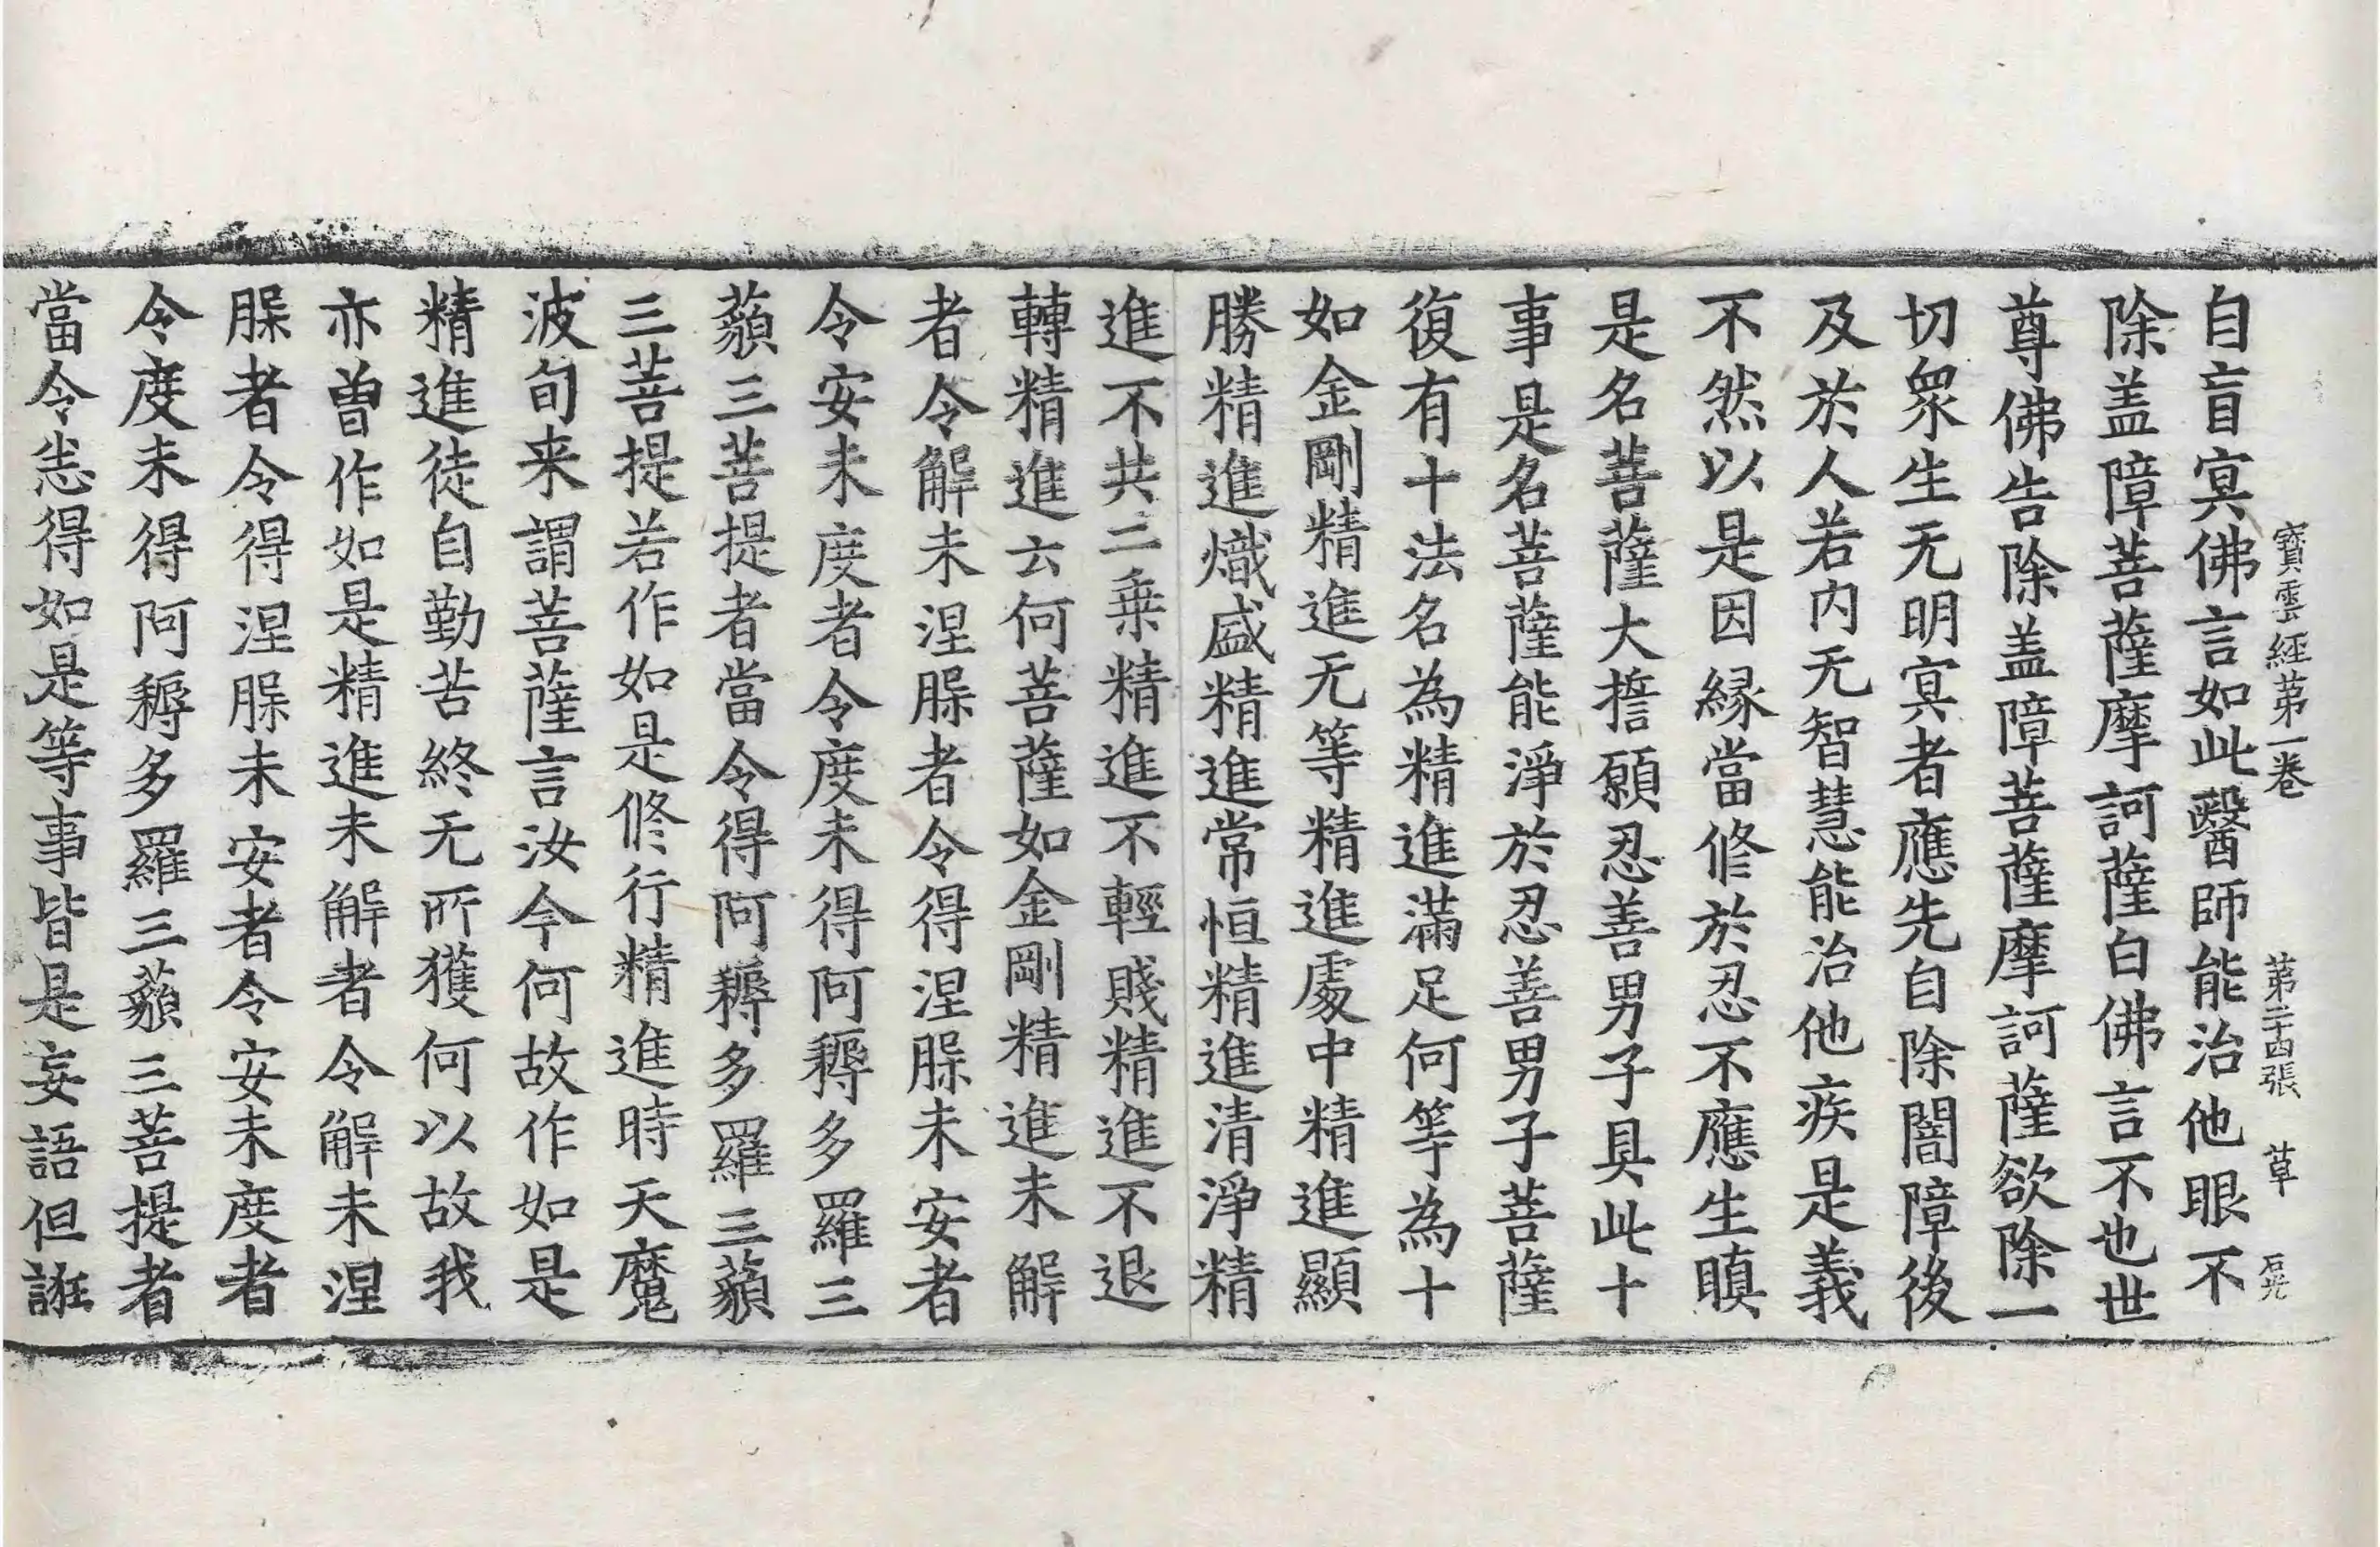 寶雲經第一卷 第二十四張 草 石光
自盲冥佛言如此醫師能治他眼不
除盖障菩薩摩訶薩白佛言不也世
尊佛告除盖障菩薩摩訶薩欲除一
切衆生无明冥者應先自除闇障後
及於人若内无智慧能治他疾是義
不然以是因縁當修於忍不應生瞋
是名菩薩大誓願忍善男子具此十
事是名菩薩能淨於忍善男子菩薩
復有十法名為精進滿足何等為十
如金剛精進无等精進處中精進顯
勝精進熾盛精進常恒精進清淨精
進不共二乗精進不輕賤精進不退
轉精進云何菩薩如金剛精進未解
者令解未涅槃者令得涅槃未安者
令安未度者令度未得阿耨多羅三
藐三菩提者當令得阿耨多羅三藐
三菩提若作如是修行精進時天魔
波旬来謂菩薩言汝今何故作如是
精進徒自勤苦終无所獲何以故我
亦曽作如是精進未解者令解未涅
槃者令得涅槃未安者令安未度者
令度未得阿耨多羅三藐三菩提者
當令悉得如是等事皆是妄語但誑